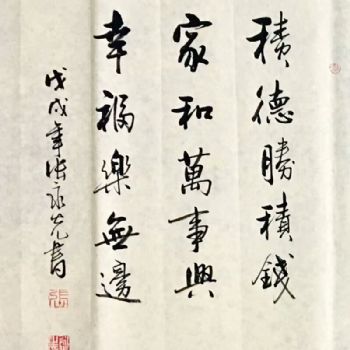 積德勝積錢
家和萬事興
幸福樂無邊
戊戌年張永光書
張